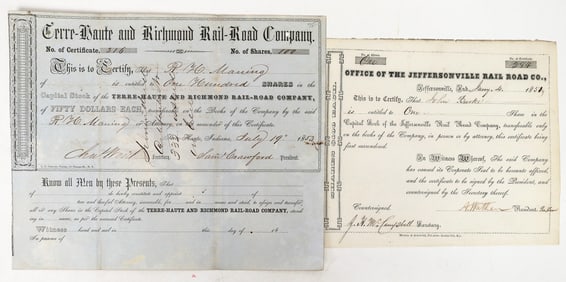 Terre-Haute and Richmond Rail-Road Company.
No. of Certificate, 316 No. of Shares, 100
This is to Certify, That R. H. Maning
is entitled to One Hundred SHARES in the
Capital Stock of the TERRE-HAUTE AND RICHMOND RAIL-ROAD COMPANY,
of FIFTY DOLLARS EACH, transferable on the Books of the Company by the said
R. H. Maning or Attorney, on surrender of this Certificate.
Haute, Indiana, July 19th 1853
Chas Wood Secretary. Sam Crawford President.
Know all Men by these Presents, That
do hereby constitute and appoint
true and lawful Attorney, irrevocable, for and in name and stead, to assign and transfer,
all my Shares in the Capital Stock of the TERRE-HAUTE AND RICHMOND RAIL-ROAD COMPANY, stand
ing in name, as per the annexed Certificate.
Witness hand and seal this day of 18
In presence of
No. of Shares One No. of Certificate 244
OFFICE OF THE JEFFERSONVILLE RAIL ROAD CO.,
Jeffersonville, Ind. 185
This is to Certify, That John
is entitled to One Share in the
Capital Stock of the Jeffersonville Rail Road Company, transferable only
on the books of the Company, in person or by attorney, this certificate being
first surrendered.
In Witness Whereof, The said Company
has caused its Corporate Seal to be hereunto affixed,
and the certificate to be signed by the President, and
countersigned by the Secretary thereof.
Countersigned. President
J. H. McCampbell Secretary.